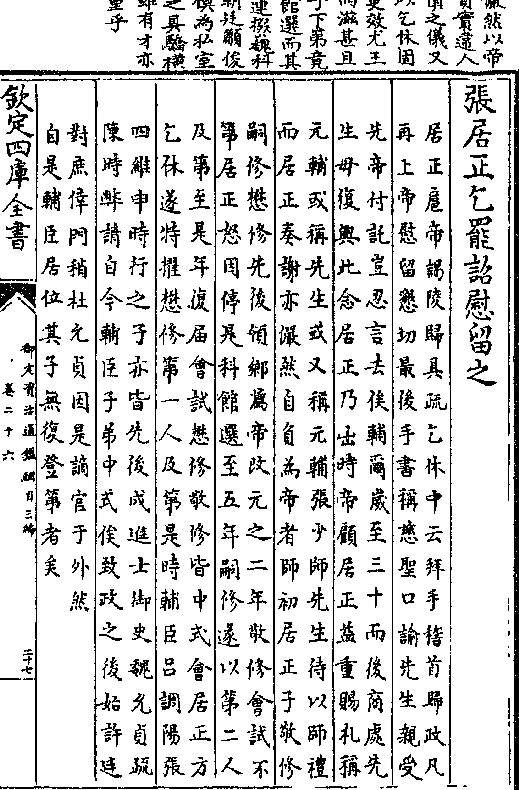 張居正乞罷詔慰留之
居正扈帝謁陵歸具疏乞休中云拜手稽首歸政凡
再上帝慰留懇切最後手書稱慈聖口諭先生親受
先帝付託豈忍言去俟輔爾歲至三十而後商處先
生毋復興此念居正乃出時帝顧居正益重賜札稱
元輔或稱先生或又稱元輔張少師先生待以師禮
而居正奏謝亦儼然自負為帝者師初居正子敬修
嗣修懋修先後領鄉薦帝改元之二年敬修會試不
第居正怒因停是科館選至五年嗣修遂以第二人
及第至是年復屆會試懋修敬修皆中式會居正方
乞休遂特擢懋修第一人及第是時輔臣呂調陽張
四維申時行之子亦皆先後成進士御史魏允貞疏
陳時弊請自今輔臣子弟中式俟致政之後始許廷
對庶倖門稍杜允貞因是謫官于外然
自是輔臣居位其子無復登第者矣
欽定四庫全書
御定資治通鑑綱目三編
卷二十六
二十七
儼然以帝
實違人
之儀又
以乞休固
更效尤王
而滋甚且
子下第竟
館選而其
連掇巍科
朝廷顯俊
模為私室
之具驕橫
雖有才亦
至乎